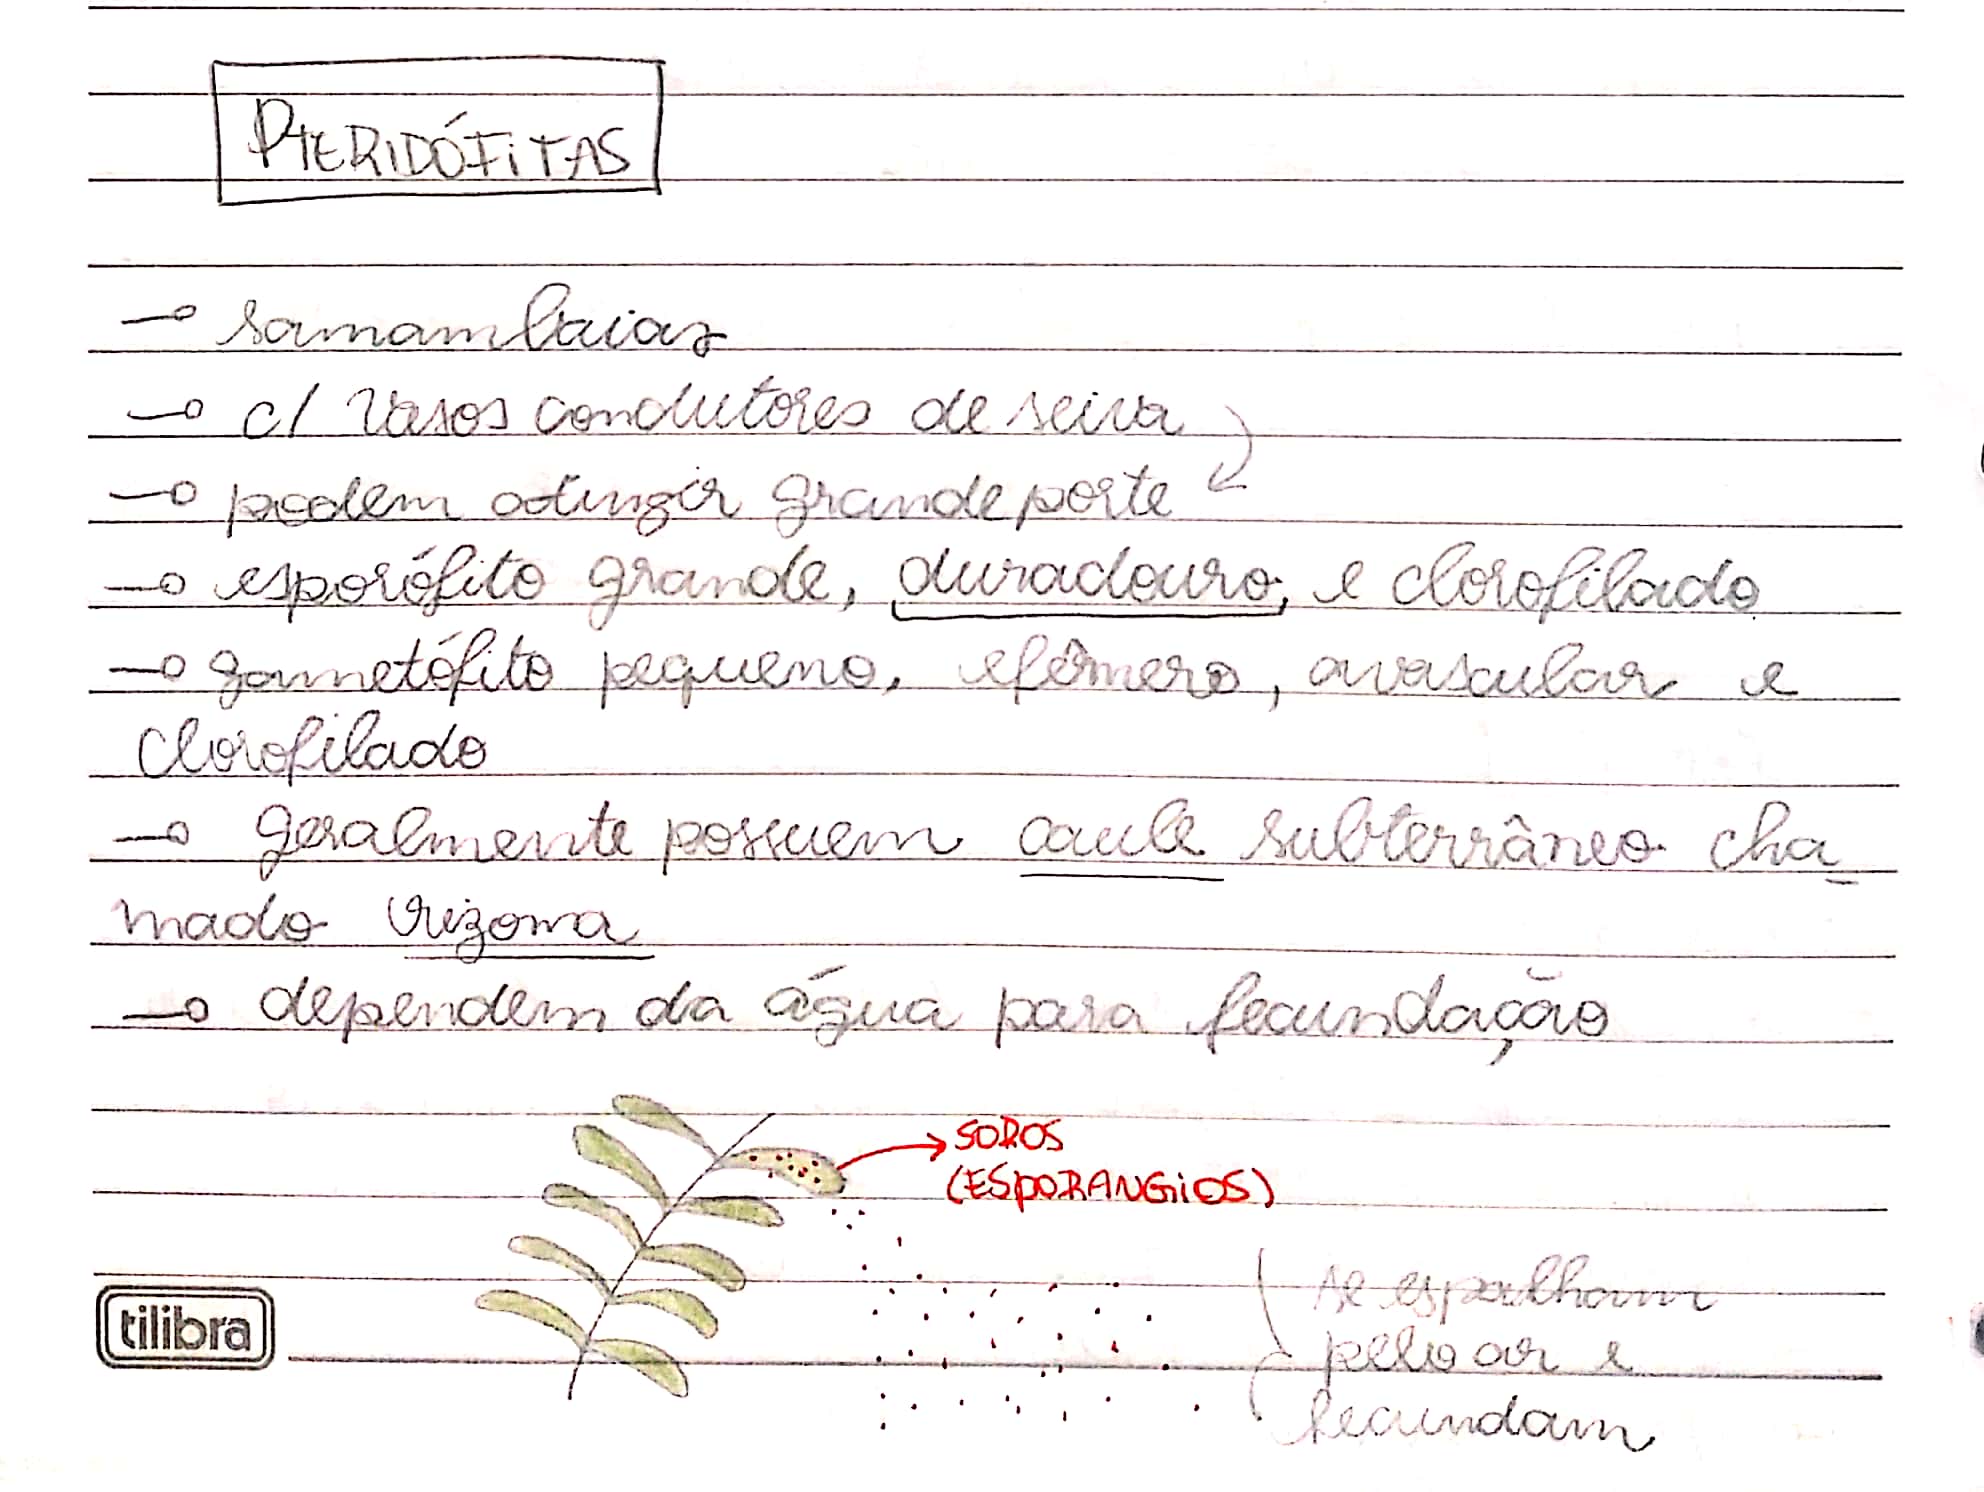 PTERIDÓFITAS
samambaias
c/ vasos condutores de seiva
podem atingir grande porte
esporófito grande, duradouro, e clorofilado
gametófito pequeno, efêmero, avascular e
clorofilado
geralmente possuem caule subterrâneo cha-
mado rizoma
dependem da água para fecundação
SOROS
(ESPORANGIOS)
se espalham
pelo ar e
fecundam
tilibra